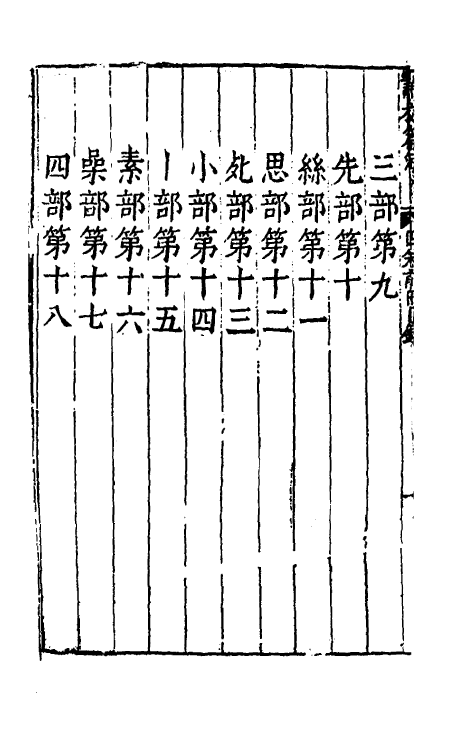 三部第九
先部第十
絲部第十一
思部第十二
死部第十三
小部第十四
丨部第十五
素部第十六
喿部第十七
四部第十八